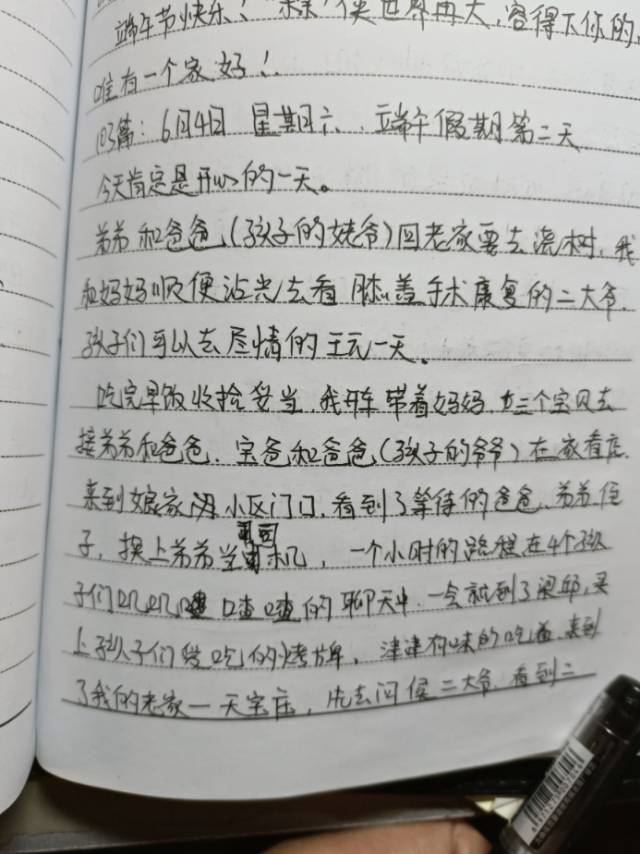 端午节快乐！"亲亲"使世界再大，容得下你的，
唯有一个家好！
日3篇：6月4日 星期六、端午假期第二天
今天肯定是开心的一天。
弟弟和爸爸（孩子的姥爷）回老家要去浇树，我
和妈妈顺便沾光去看膝盖手术康复的二大爷，
孩子们可以去尽情的玩一天。
吃完早饭收拾妥当，我开车带着妈妈，女三个宝贝去
接弟弟和爸爸，宝爸和爸爸（孩子的爷爷）在家看店，
来到娘家小区门口，看到了等待的爸爸、弟弟、侄
子，换上弟弟当司机，一个小时的路程在4个孩
子们叽叽喳喳的聊天中一会就到了梁邱，买
上孩子们爱吃的烤牌，津津有味的吃着，来到
了我的老家一天宝庄，先去问候二大爷，看到二